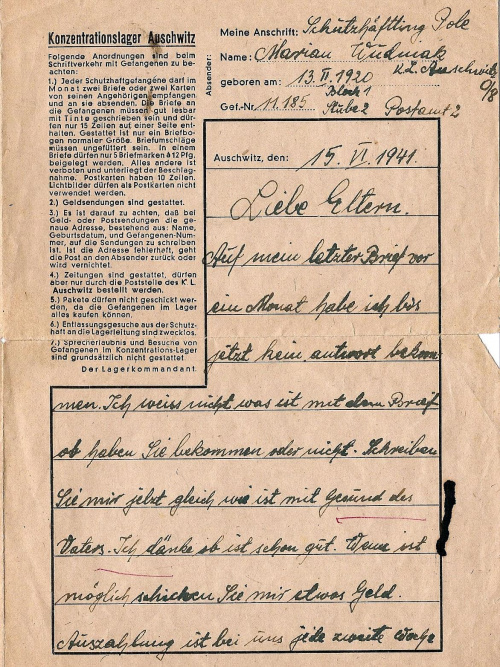 Konzentrationslager Auschwitz
Folgende Anordnungen sind beim
Schriftverkehr mit Gefangenen zu be-
achten:
1.) Jeder Schutzhaftgefangene darf im
Monat zwei Briefe oder zwei Karten
von seinen Angehörigen empfangen
und an sie absenden. Die Briefe an
die Gefangenen müssen gut lesbar
mit Tinte geschrieben sein und dür-
fen nur 15 Zeilen auf einer Seite ent-
halten. Gestattet ist nur ein Briefbo-
gen normaler Größe. Briefumschläge
müssen ungefüttert sein. In einem
Briefe dürfen nur 5 Briefmarken à 12 Pfg.
beigelegt werden. Alles andere ist
verboten und unterliegt der Beschlag-
nahme. Postkarten haben 10 Zeilen.
Lichtbilder dürfen als Postkarten nicht
verwendet werden.
2.) Geldsendungen sind gestattet.
3.) Es ist darauf zu achten, daß bei
Geld- oder Postsendungen die ge-
naue Adresse, bestehend aus: Name,
Geburtsdatum, und Gefangenen-Num-
mer, auf die Sendungen zu schreiben
ist. Ist die Adresse fehlerhaft, geht
die Post an den Absender zurück oder
wird vernichtet.
4.) Zeitungen sind gestattet, dürfen
aber nur durch die Poststelle des K L
Auschwitz bestellt werden.
5.) Pakete dürfen nicht geschickt wer-
den, da die Gefangenen im Lager
alles kaufen können.
6.) Entlassungsgesuche aus der Schutz-
haft an die Lagerleitung sind zwecklos.
7.) Sprecherlaubnis und Besuche von
Gefangenen im Konzentrations-Lager
sind grundsätzlich nicht gestattet.
Der Lagerkommandant.
Absender:
Meine Anschrift: Schutzhäftling Pole
Name: Marian
K.L. Auschwitz
geboren am: 13. II. 1920
O/S
Block 1
Gef.-Nr. 11.185 Stube 2 Postamt 2
Auschwitz, den: 15. VI. 1941.
Liebe Eltern.
Auf mein letzter Brief vor
ein Monat habe ich bis
jetzt kein antwort bekom
men. Ich weiss nicht was ist mit dem Brief
ob haben Sie bekommen oder nicht. Schreiben
Sie mir jetzt gleich wie ist mit Gesund des
Vaters. Ich dänke ob ist schon gut. Wenn ist
möglich schicken Sie mir etwas Geld.
Auszahlung ist bei uns jede zweite Woche